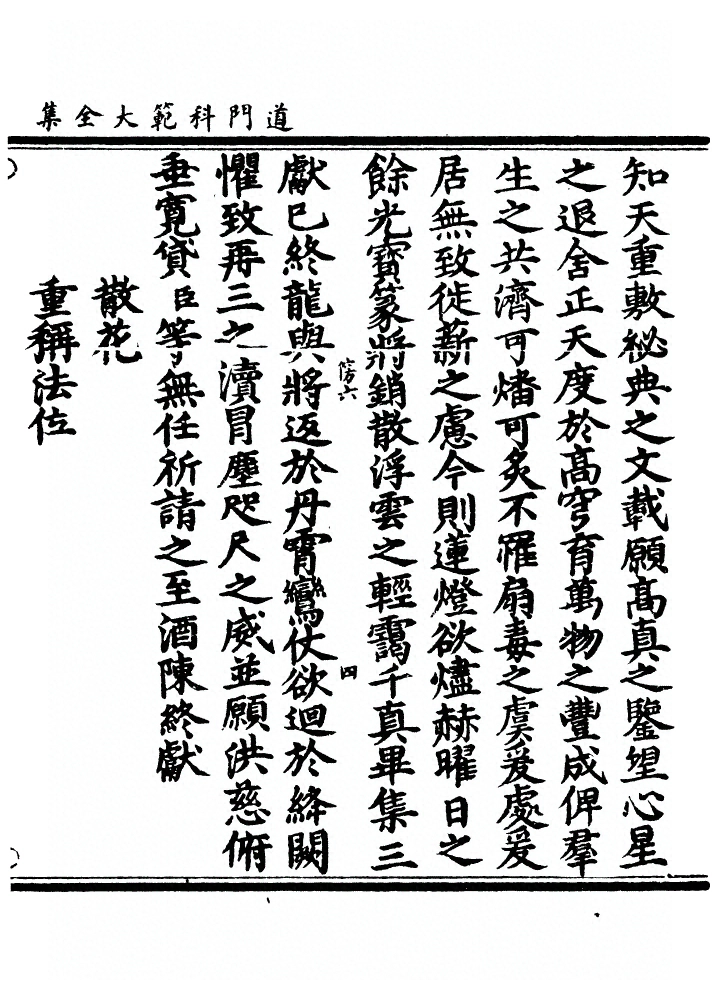 道門科範大全集
知天重敷祕典之文載願高真之鑒望心星
之退舍正天度於高穹育萬物之豐成俾羣
生之共濟可燔可炙不罹扇毒之虞爰處爰
居無致徙薪之慮今則蓮燈欲燼赫曜日之
餘光寳篆將銷散浮雲之輕靄千真畢集三
傍六
四
獻已終龍輿將返於丹霄鸞仗欲迴於絳闕
懼致再三之瀆冒塵咫尺之威並願洪慈俯
垂寛貸臣等無任祈請之至酒陳終獻
散花
重稱法位